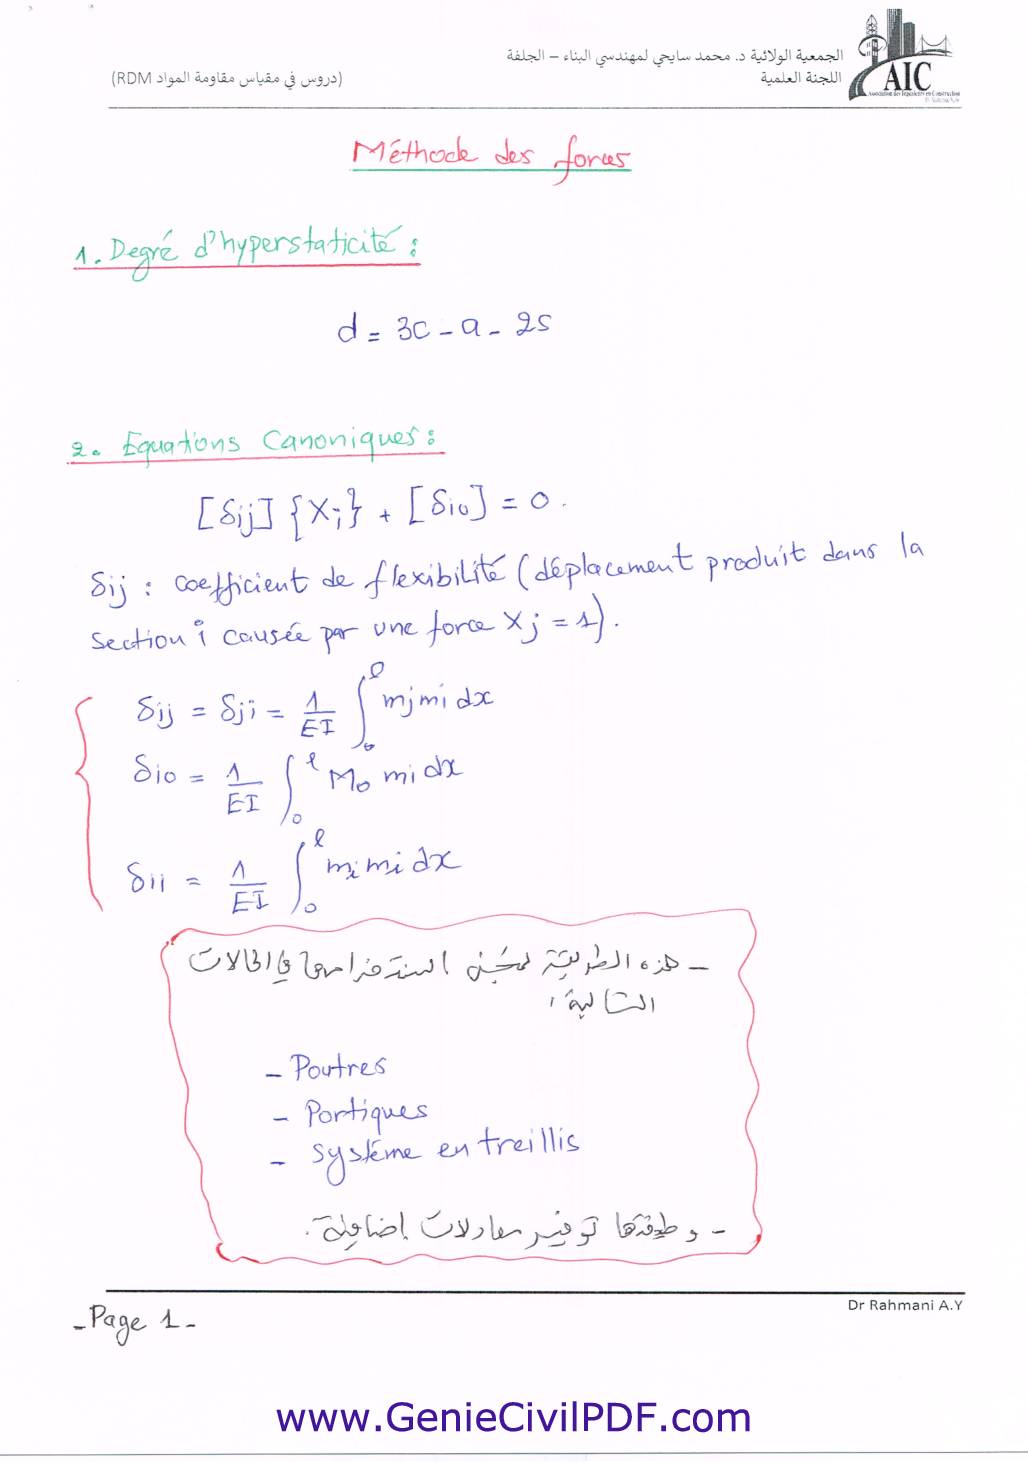 الجمعية الولائية د. محمد سايحي لمهندسي البناء – الجلفة
اللجنة العلمية
(دروس في مقياس مقاومة المواد RDM)
AIC
Association des Ingénieurs en Construction
Méthode des forces
1. Degré d'hyperstaticité :
d = 3c - a - 2s
2. Equations Canoniques :
[δij] {Xi} + [δio] = 0.
δij : coefficient de flexibilité (déplacement produit dans la
section i causée par une force Xj = 1).
δij = δji = 1/EI ∫₀ˡ mj mi dx
δio = 1/EI ∫₀ˡ Mo mi dx
δii = 1/EI ∫₀ˡ mi mi dx
– هذه الطريقة يمكن استخدامها في الحالات
التالية:
- Poutres
- Portiques
- Système en treillis
- وظيفتها توفير معادلات إضافية.
Dr Rahmani A.Y
- Page 1 -
www.GenieCivilPDF.com